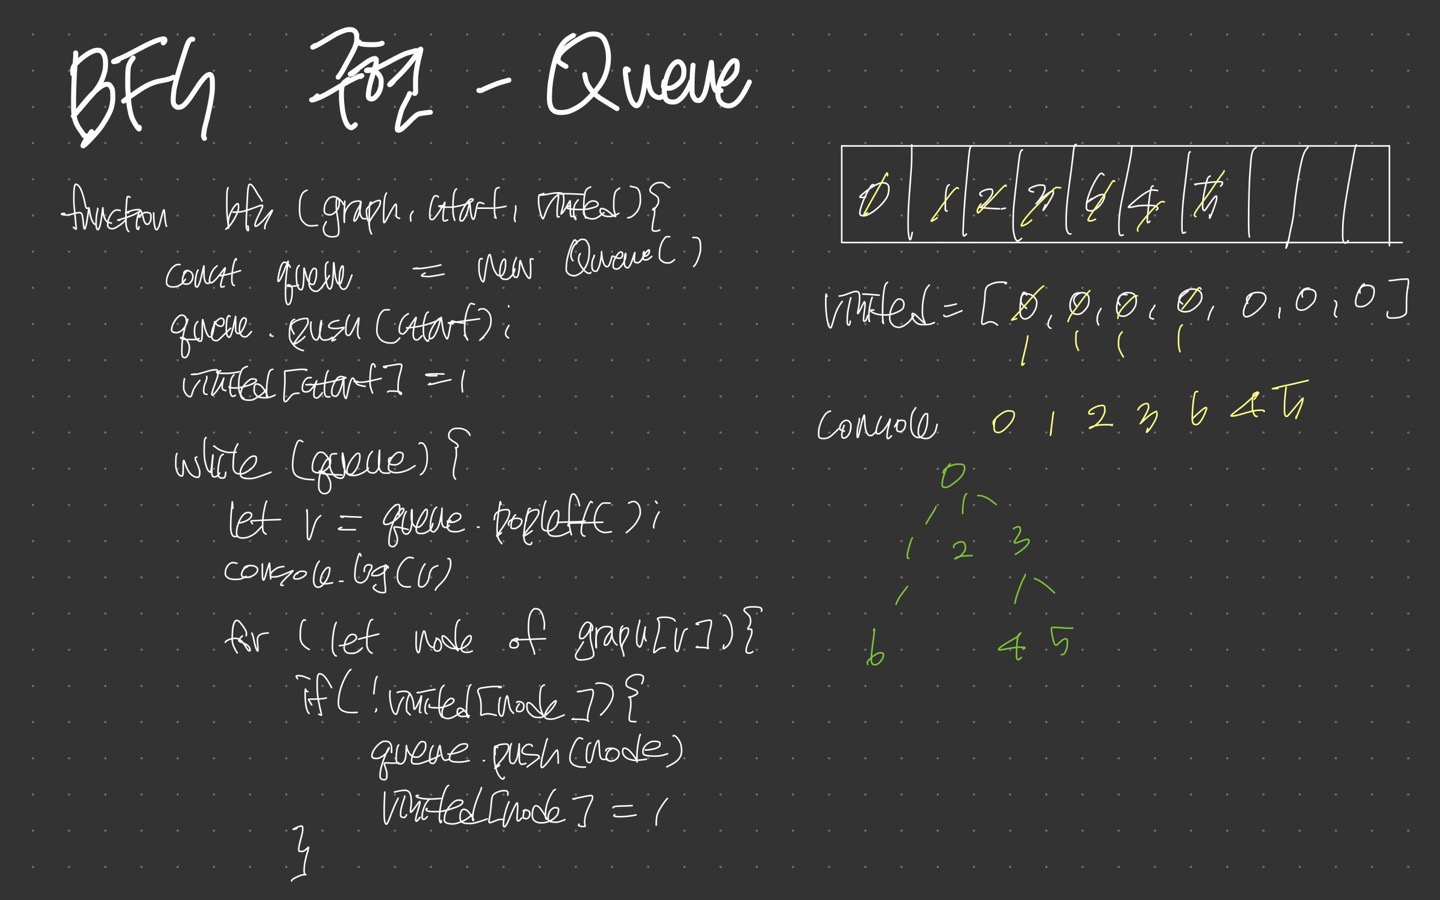 BFS 구현 - Queue
function bfs (graph, start, visited){
const queue = new Queue()
queue.push(start);
visited[start] = 1
while (queue) {
let v = queue.popleft();
console.log(v)
for (let node of graph[v]){
if(!visited[node]){
queue.push(node)
visited[node] = 1
}
0 1 2 3 6 4 5
visited = [0, 0, 0, 0, 0, 0, 0]
1 1 1 1
console 0 1 2 3 6 4 5
0
1 2 3
6 4 5